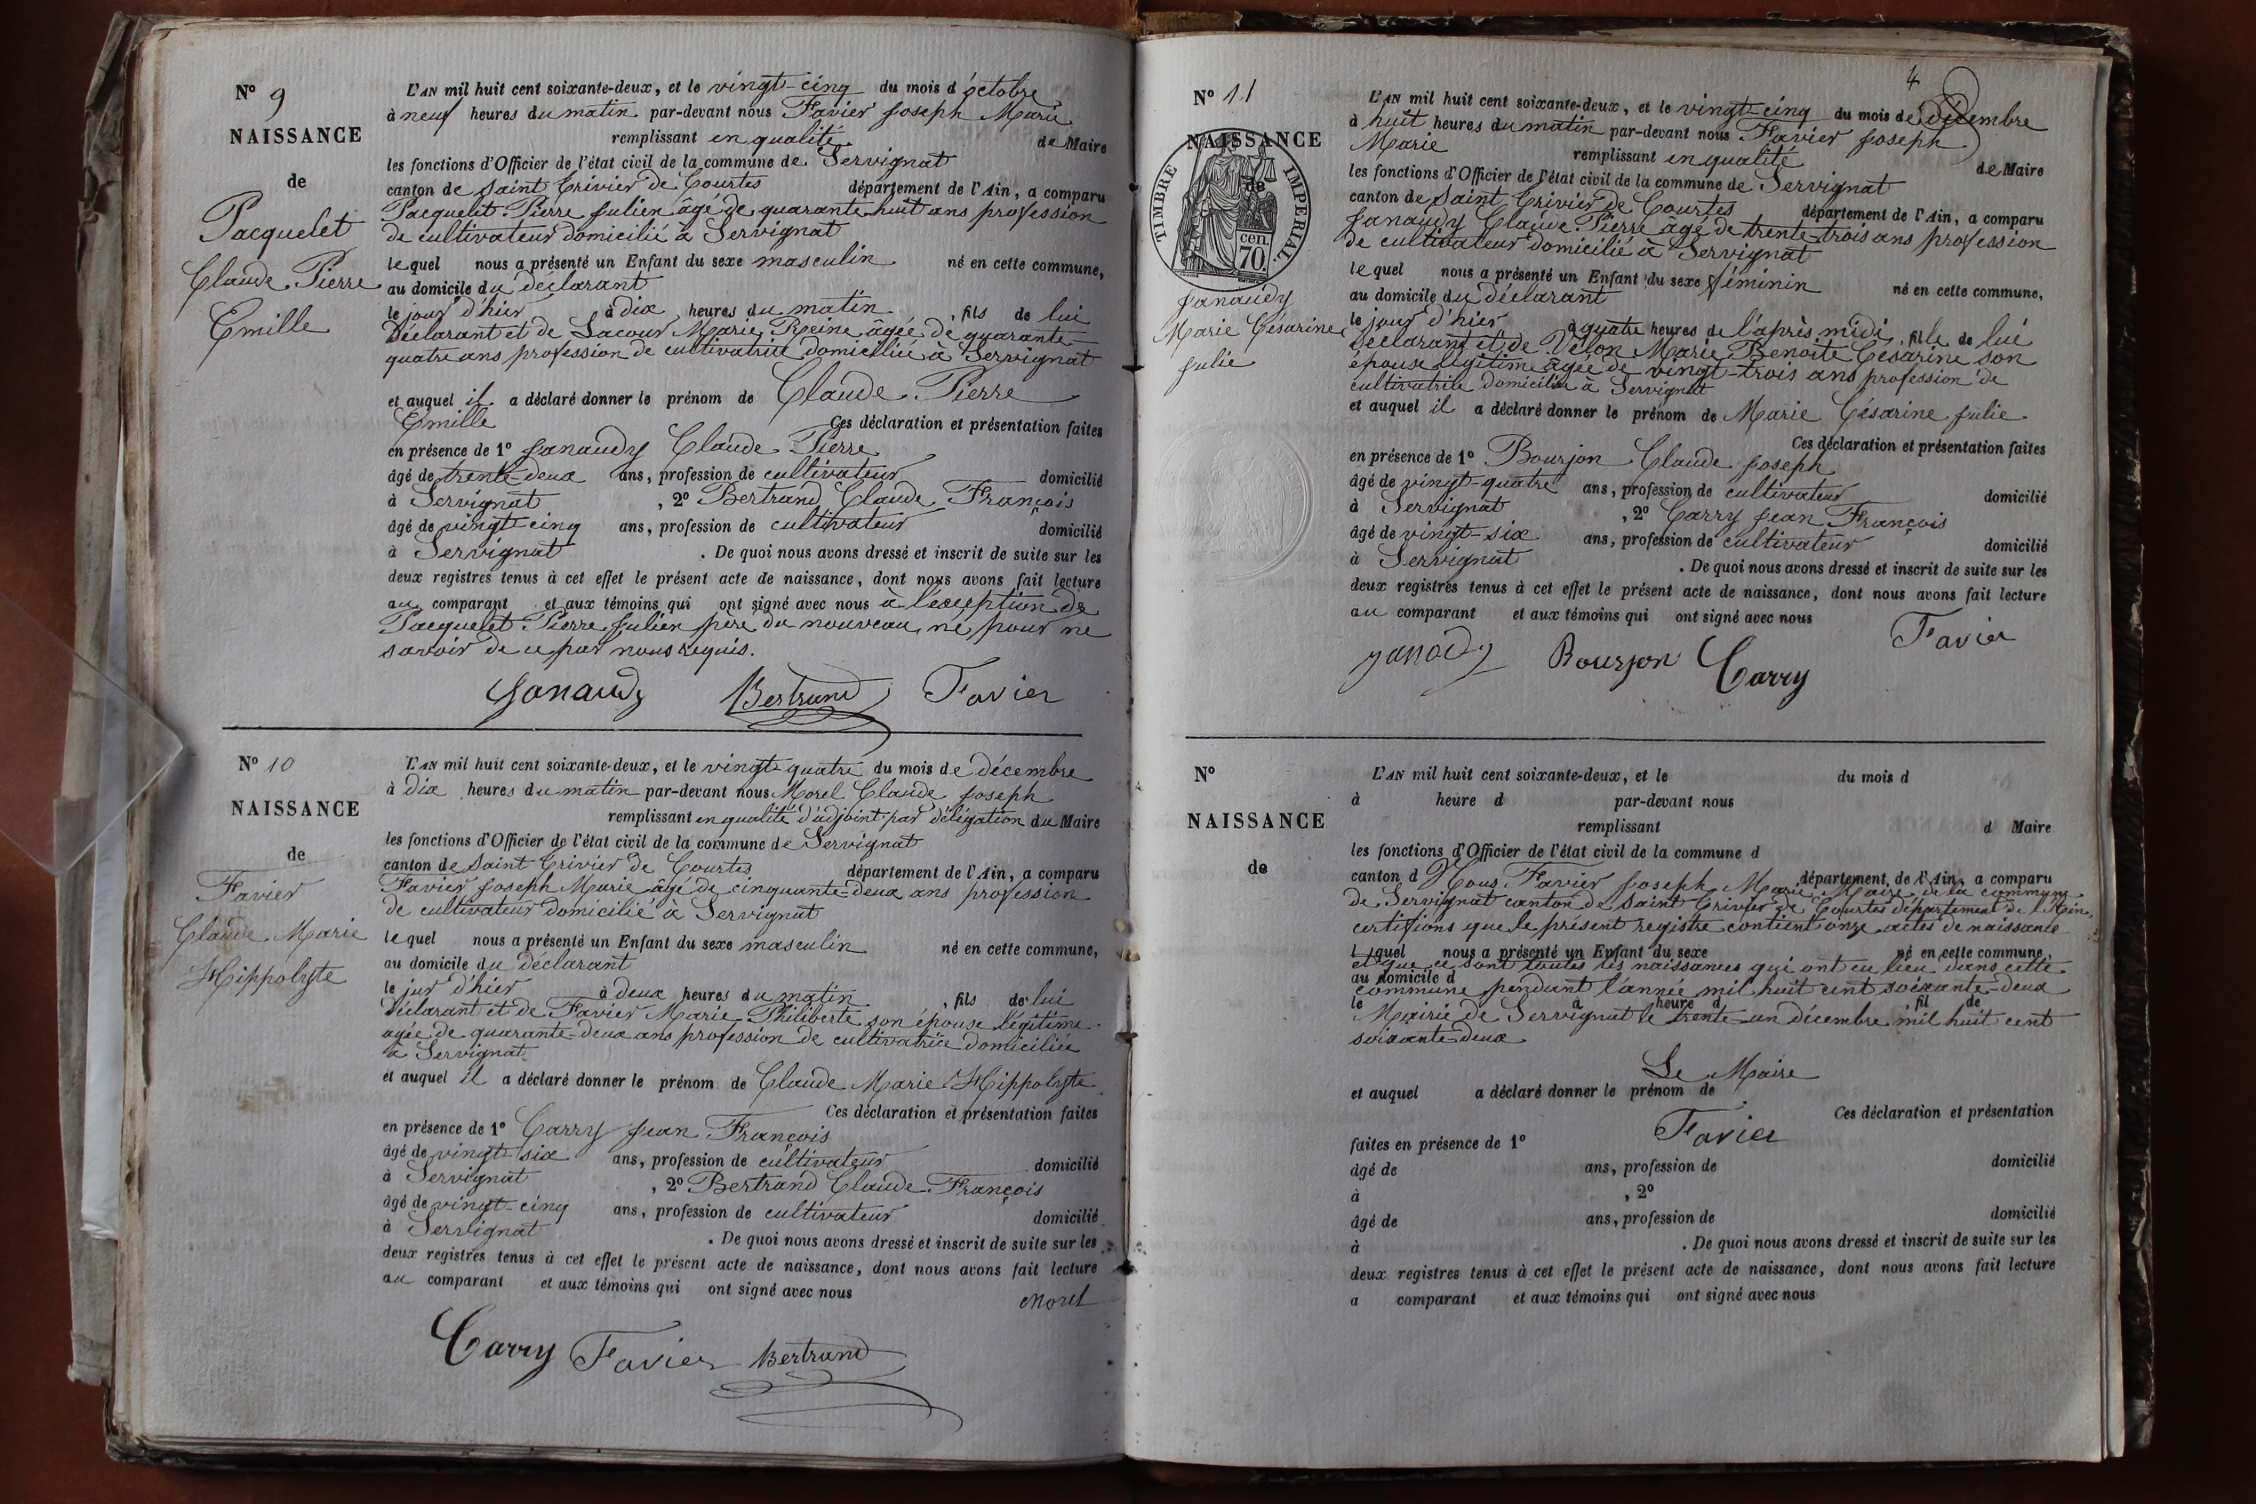 N° 9
NAISSANCE
de
Pacquelet
Claude Pierre
Emille
L'AN mil huit cent soixante-deux, et le vingt-cinq du mois d'octobre
à neuf heures du matin par-devant nous Favier Joseph Marie
remplissant en qualité de Maire
les fonctions d'Officier de l'état civil de la commune de Servignat
canton de Saint Trivier de Courtes département de l'Ain, a comparu
Pacquelet Pierre Julien âgé de quarante huit ans profession
de cultivateur domicilié à Servignat
lequel nous a présenté un Enfant du sexe masculin né en cette commune,
au domicile du déclarant
le jour d'hier à dix heures du matin, fils de lui
Déclarant et de Lacour Marie Reine âgée de quarante-
quatre ans profession de cultivatrice domiciliée à Servignat
et auquel il a déclaré donner le prénom de Claude Pierre
Emille Ces déclaration et présentation faites
en présence de 1° Janaudy Claude Pierre
âgé de trente-deux ans, profession de cultivateur domicilié
à Servignat, 2° Bertrand Claude François
âgé de vingt-cinq ans, profession de cultivateur domicilié
à Servignat. De quoi nous avons dressé et inscrit de suite sur les
deux registres tenus à cet effet le présent acte de naissance, dont nous avons fait lecture
au comparant et aux témoins qui ont signé avec nous à l'exception de
Pacquelet Pierre Julien père du nouveau né pour ne
savoir de ce par nous requis.
Janaudy Bertrand Favier
N° 10
NAISSANCE
de
Favier
Claude Marie
Hippolyte
L'AN mil huit cent soixante-deux, et le vingt-quatre du mois de décembre
à dix heures du matin par-devant nous Morel Claude Joseph
remplissant en qualité d'adjoint par délégation du Maire
les fonctions d'Officier de l'état civil de la commune de Servignat
canton de Saint Trivier de Courtes département de l'Ain, a comparu
Favier Joseph Marie âgé de cinquante-deux ans profession
de cultivateur domicilié à Servignat
lequel nous a présenté un Enfant du sexe masculin né en cette commune,
au domicile du déclarant
le jur d'hier à deux heures du matin, fils de lui
Déclarant et de Favier Marie Philiberte son épouse légitime
agée de quarante-deux ans profession de cultivatrice domiciliée
à Servignat
et auquel il a déclaré donner le prénom de Claude Marie Hippolyte
Ces déclaration et présentation faites
en présence de 1° Carry Jean François
âgé de vingt six ans, profession de cultivateur domicilié
à Servignat, 2° Bertrand Claude François
âgé de vingt-cinq ans, profession de cultivateur domicilié
à Servignat. De quoi nous avons dressé et inscrit de suite sur les
deux registres tenus à cet effet le présent acte de naissance, dont nous avons fait lecture
au comparant et aux témoins qui ont signé avec nous
Morel
Carry Favier Bertrand
4
N° 11
NAISSANCE
de
TIMBRE IMPERIAL.
70 cen.
Janaudy
Marie Césarine
Julie
L'AN mil huit cent soixante-deux, et le vingt-cinq du mois de décembre
à huit heures du matin par-devant nous Favier Joseph
Marie remplissant en qualité de Maire
les fonctions d'Officier de l'état civil de la commune de Servignat
canton de Saint Trivier de Courtes département de l'Ain, a comparu
Janaudy Claude Pierre âgé de trente-trois ans profession
de cultivateur domicilié à Servignat
lequel nous a présenté un Enfant du sexe féminin né en cette commune,
au domicile du déclarant
le jour d'hier à quatre heures de l'après midi, fille de lui
déclarant et de Velon Marie Benoite Césarine son
épouse légitime âgée de vingt-trois ans profession de
cultivatrice domiciliée à Servignat
et auquel il a déclaré donner le prénom de Marie Césarine Julie
Ces déclaration et présentation faites
en présence de 1° Bourjon Claude Joseph
âgé de vingt-quatre ans, profession de cultivateur domicilié
à Servignat, 2° Carry Jean François
âgé de vingt-six ans, profession de cultivateur domicilié
à Servignat. De quoi nous avons dressé et inscrit de suite sur les
deux registres tenus à cet effet le présent acte de naissance, dont nous avons fait lecture
au comparant et aux témoins qui ont signé avec nous
Bourjon Carry Favier
N°
NAISSANCE
de
L'AN mil huit cent soixante-deux, et le du mois d
à heure d par-devant nous
remplissant d Maire
les fonctions d'Officier de l'état civil de la commune d
canton d département de l'Ain, a comparu
Nous Favier Joseph Marie Maire de la commune
de Servignat canton de Saint Trivier de Courtes département de l'Ain,
certifions que le présent registre contient onze actes de naissance
l quel nous a présenté un Enfant du sexe né en cette commune,
et que ce sont toutes les naissances qui ont eu lieu dans cette
au domicile d
commune pendant l'année mil huit cent soixante-deux
le à heure d, fil de
Mairie de Servignat le trente-un décembre mil huit cent
soixante-deux
Le Maire
et auquel a déclaré donner le prénom de
Ces déclaration et présentation
Favier
faites en présence de 1°
âgé de ans, profession de domicilié
à , 2°
âgé de ans, profession de domicilié
à . De quoi nous avons dressé et inscrit de suite sur les
deux registres tenus à cet effet le présent acte de naissance, dont nous avons fait lecture
a comparant et aux témoins qui ont signé avec nous